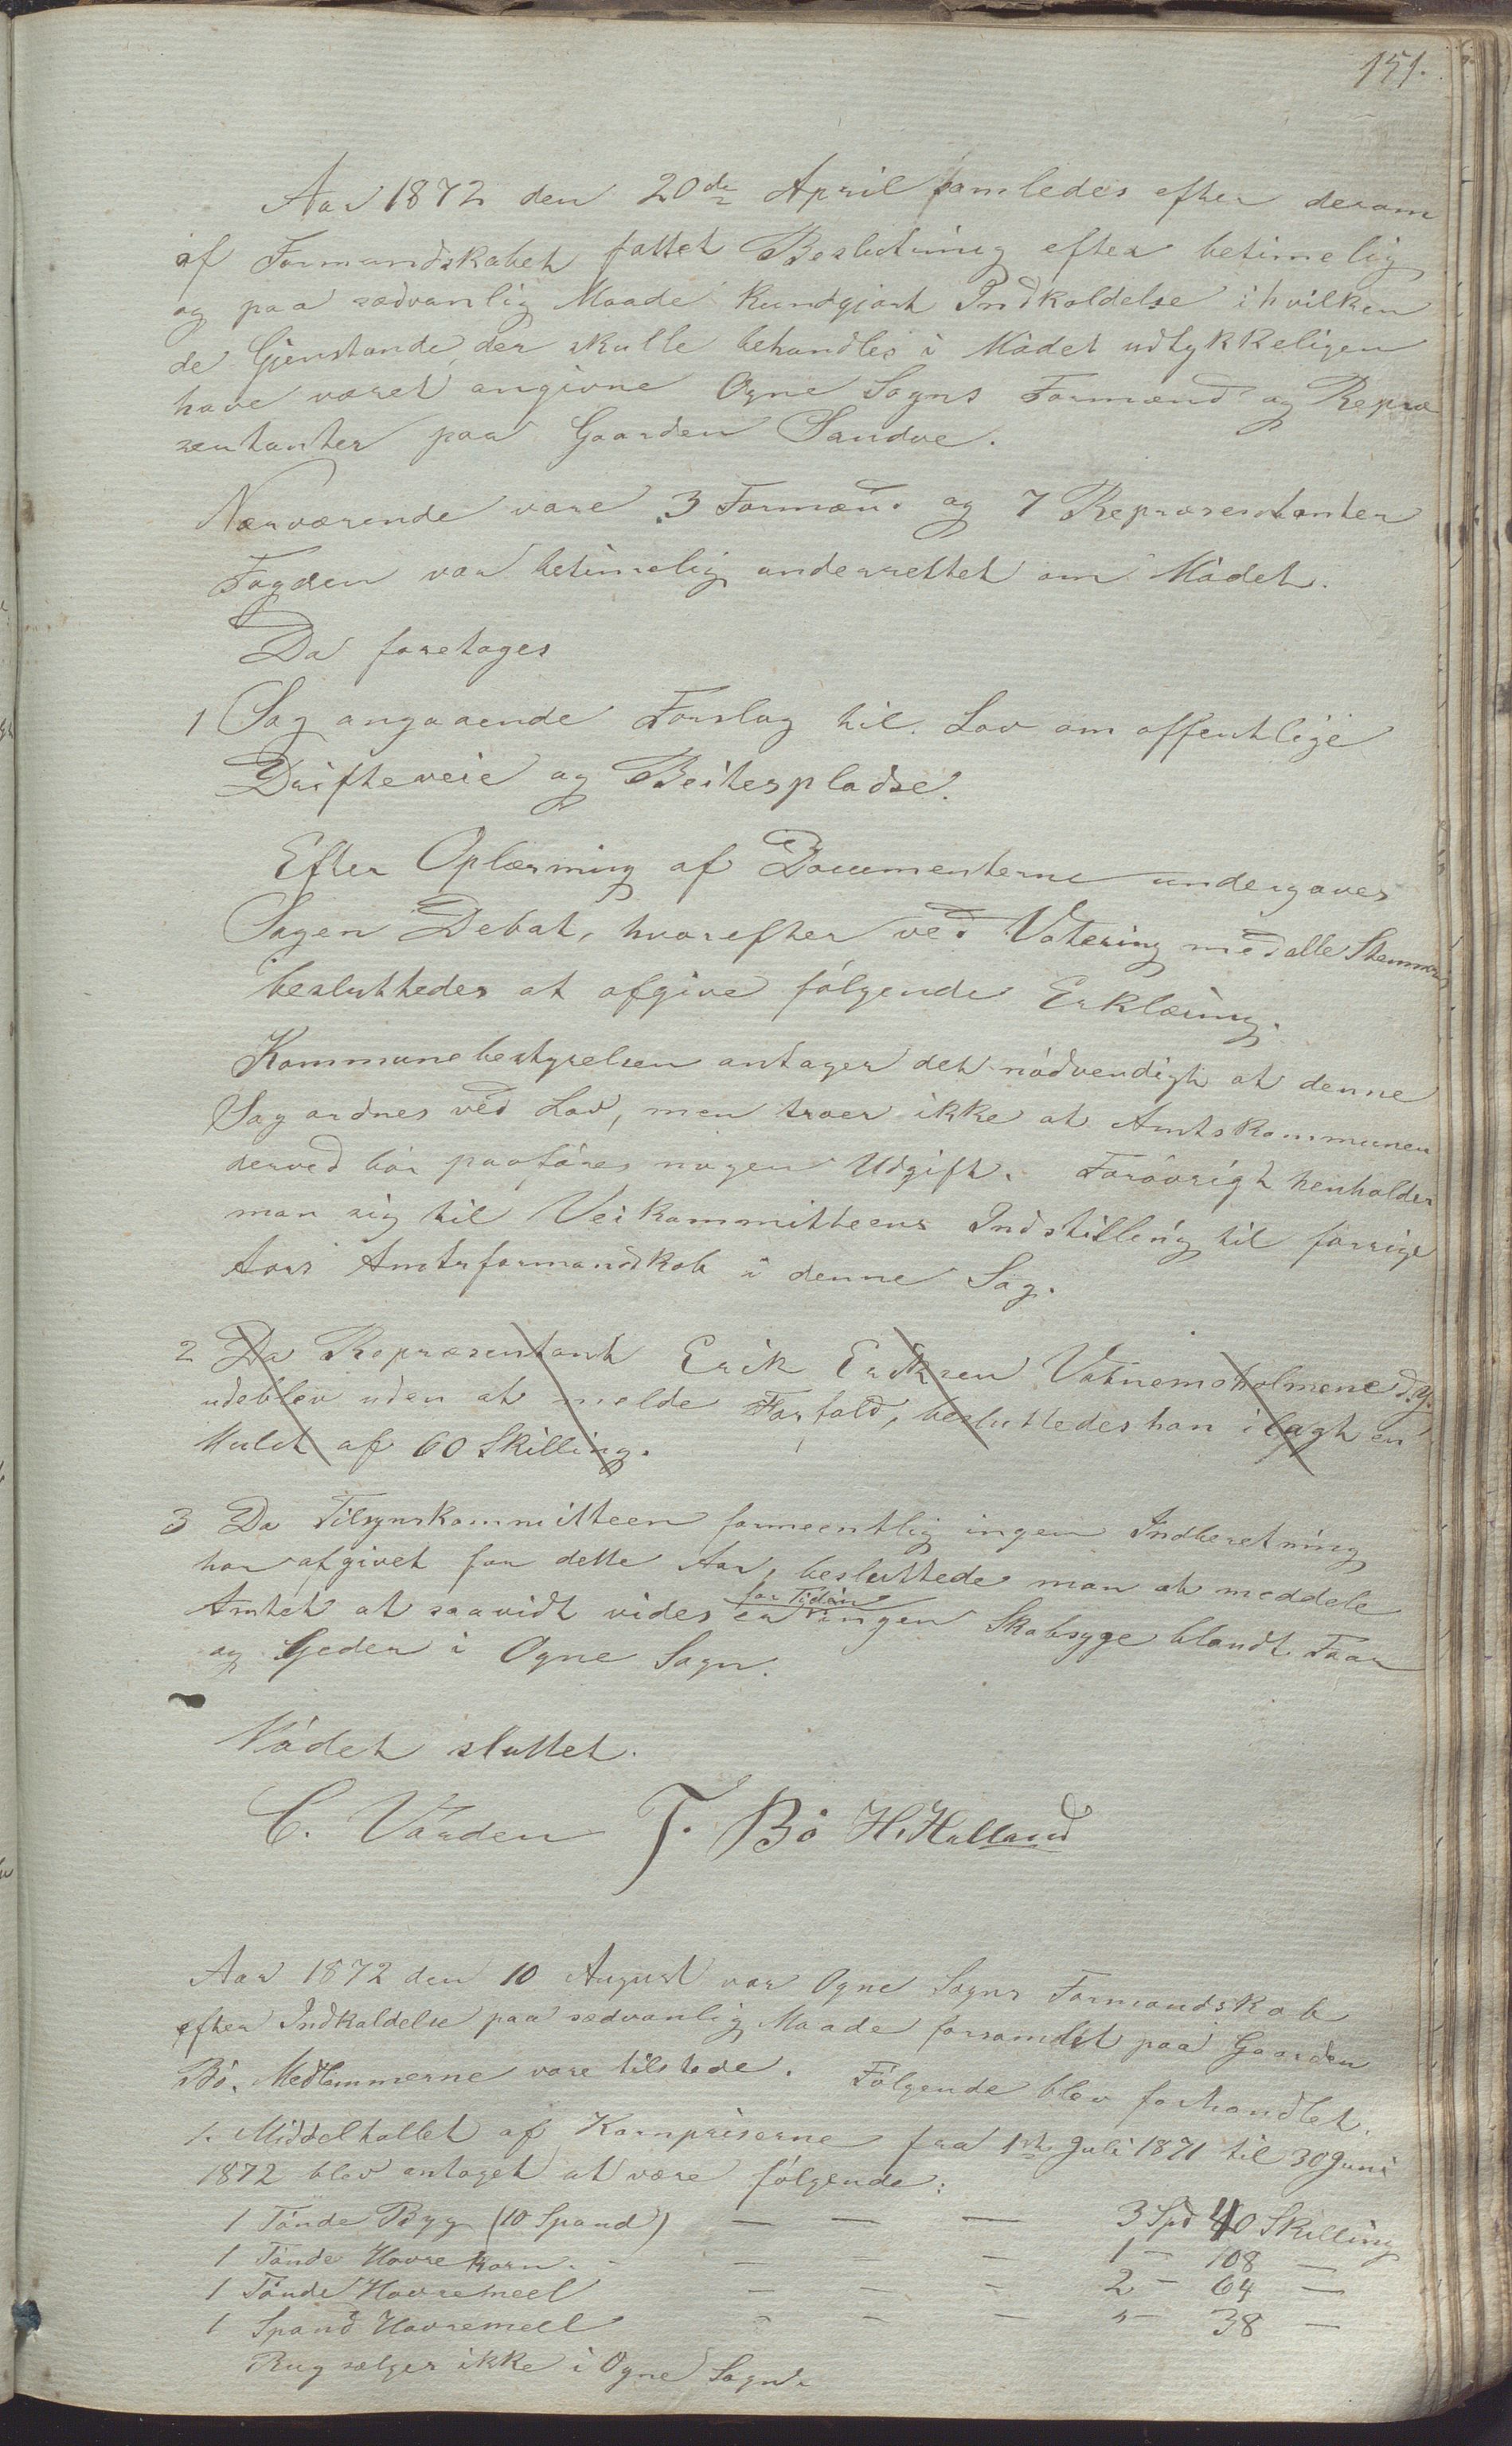 151.
Aar 1872 den 20de April samledes efter derom
af Formandskabet fattet Beslutning efter betimelig
og paa sædvanlig Maade kundgjort Indkaldelse i hvilken
de Gjenstande, der skulle behandles i Mødet udtykkeligen
have været angivne Ogne Sogns Formænd og Repræ
sentanter paa Gaarden Sandve.
Nærværende vare 3 Formænd og 7 Repræsentanter
Fogden var betimelig underrettet om Mødet.
Da foretages
1 Sag angaaende Forslag til Lov om offentlige
Drifteveie og Beitespladse.
Efter Oplæsning af Documenterne undergaves
Sagen Debat, hvorefter ved Votering med alle Stemmer
besluttedes at afgive følgende Erklæring.
Kommunebestyrelsen antager det nødvendigt at denne
Sag ordnes ved Lov, men troer ikke at Amtskommunen
derved bør paaføres nogen Udgift. Forøvrigt henholder
man sig til Veikommitteens Indstilling til forrige
Aars Amtsformandskab i denne Sag.
2 Da Repræsentant Erik Eriksen Vatnemoholmene d.y.
udeblev uden at melde Forfald, besluttedes han ilagt en
Mulct af 60 Skilling.
3 Da Tilsynskommitteen formeentlig ingen Indberetning
har afgivet for dette Aar, besluttede man at meddele
Amtet at saavidt vides er for Tiden ingen Skabsyge blandt Faar
og Geder i Ogne Sogn.
Mødet sluttet.
C. Varden T. Bø H. Halland
Aar 1872 den 10 August var Ogne Sogns Formandskab
efter Indkaldelse paa sædvanlig Maade forsamlet paa Gaarden
Bø. Medlemmerne vare tilstede. Følgende blev forhandlet.
1. Middeltallet af Kornpriserne fra 1ste Juli 1871 til 30 Juni
1872 blev antaget at være følgende:
1 Tønde Byg (10 Spand) — — — 3 Spd 40 Skilling
1 Tønde Havrekorn - — — — 1 — 108 —
1 Tønde Havremeel — — — 2 — 64 —
1 Spand Havremeel — — — " — 38 —
Rug sælges ikke i Ogne Sogn.